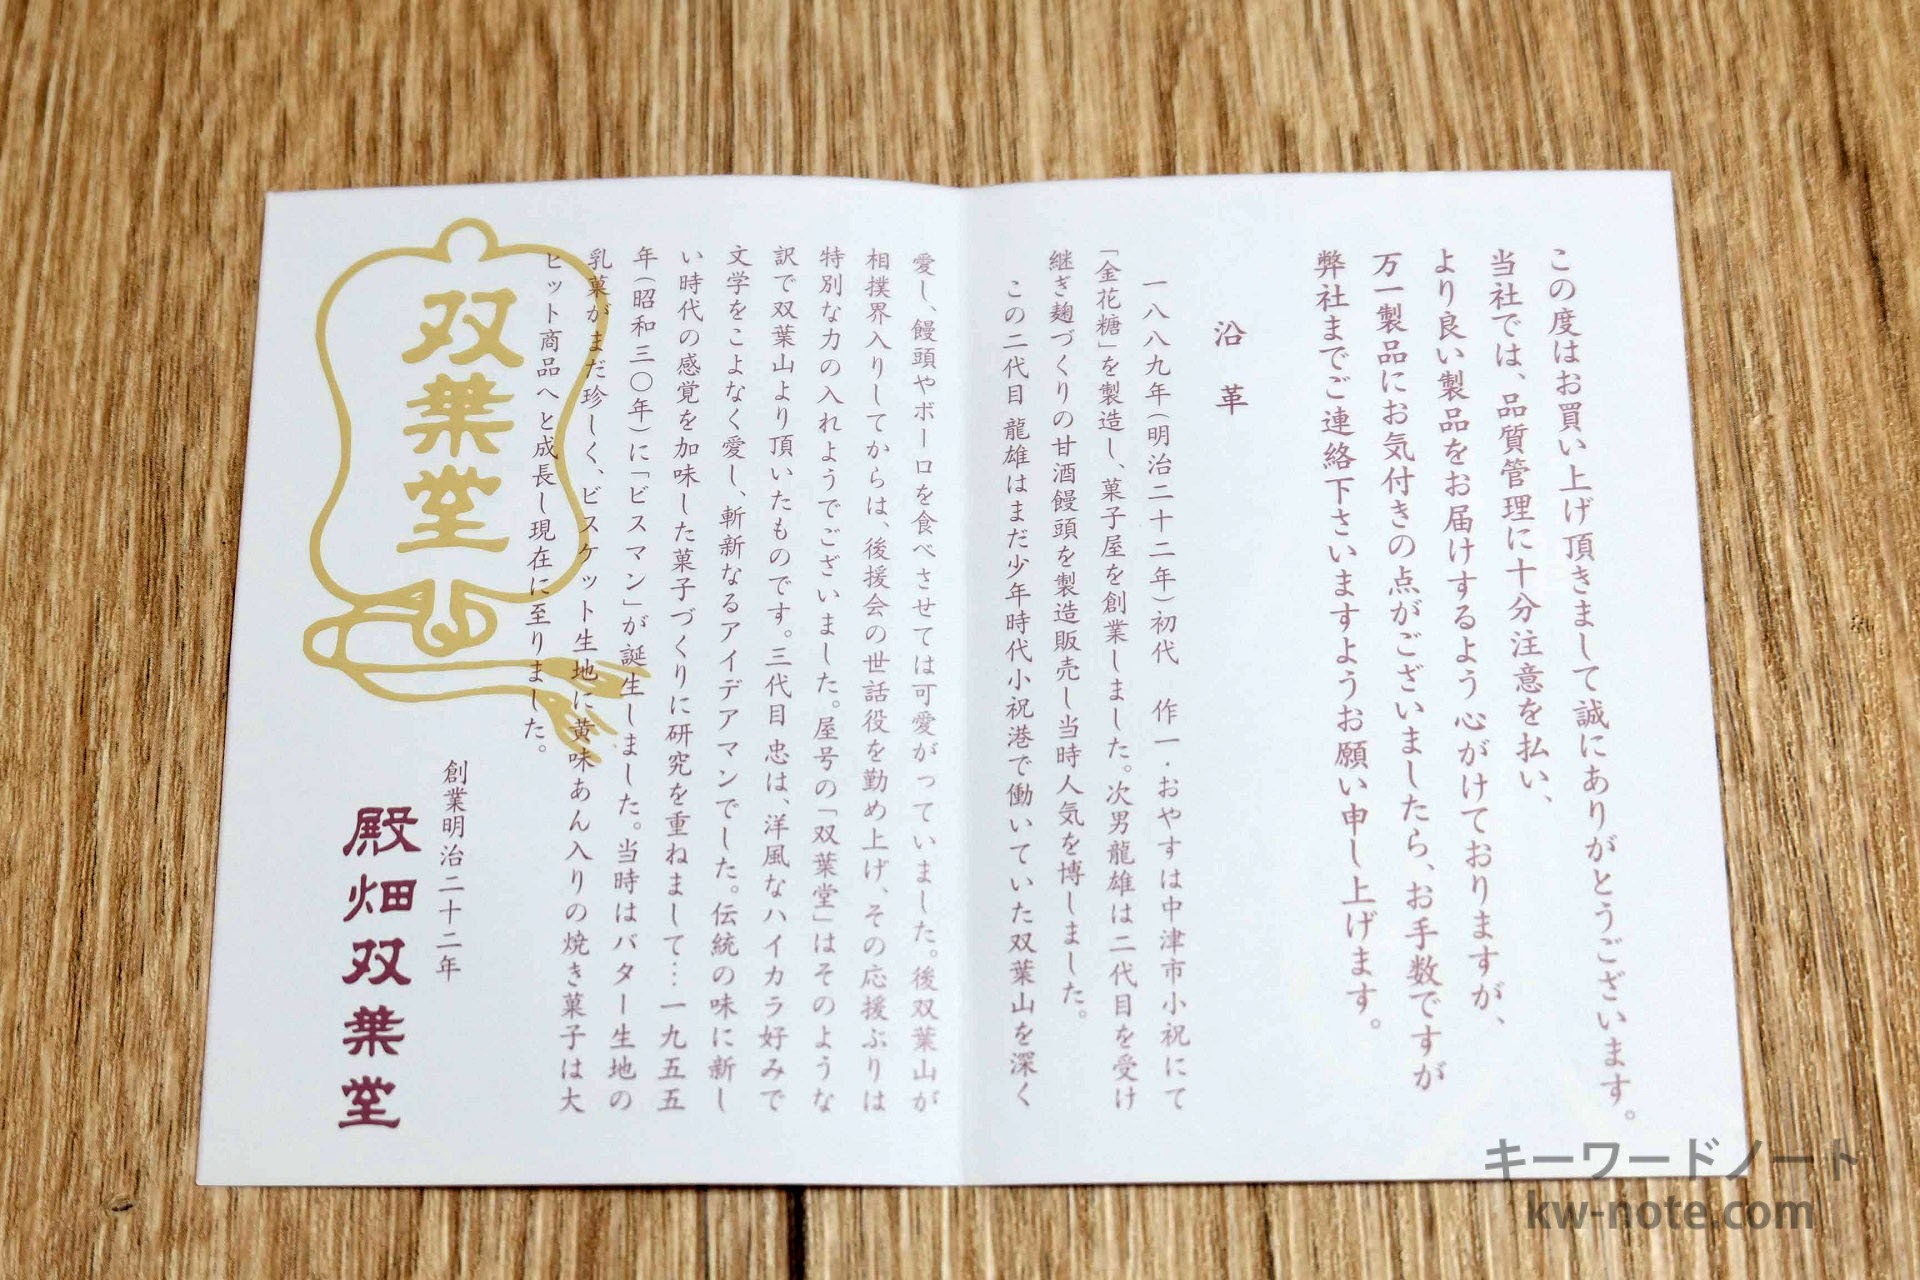 この度はお買い上げ頂きまして誠にありがとうございます。
当社では、品質管理に十分注意を払い、
より良い製品をお届けするよう心がけておりますが、
万一製品にお気付きの点がございましたら、お手数ですが
弊社までご連絡下さいますようお願い申し上げます。
沿革
一八八九年(明治二十二年)初代 作一・おやすは中津市小祝にて
「金花糖」を製造し、菓子屋を創業しました。次男龍雄は二代目を受け
継ぎ麹づくりの甘酒饅頭を製造販売し当時人気を博しました。
この二代目 龍雄はまだ少年時代小祝港で働いていた双葉山を深く
愛し、饅頭やボーロを食べさせては可愛がっていました。後双葉山が
相撲界入りしてからは、後援会の世話役を勤め上げ、その応援ぶりは
特別な力の入れようでございました。屋号の「双葉堂」はそのような
訳で双葉山より頂いたものです。三代目 忠は、洋風なハイカラ好みで
文学をこよなく愛し、斬新なるアイデアマンでした。伝統の味に新し
い時代の感覚を加味した菓子づくりに研究を重ねまして…一九五五
年(昭和三〇年)に「ビスマン」が誕生しました。当時はバター生地の
乳菓がまだ珍しく、ビスケット生地に黄味あん入りの焼き菓子は大
ヒット商品へと成長し現在に至りました。
双葉堂
創業明治二十二年
殿畑双葉堂
キーワードノート
kw-note.com